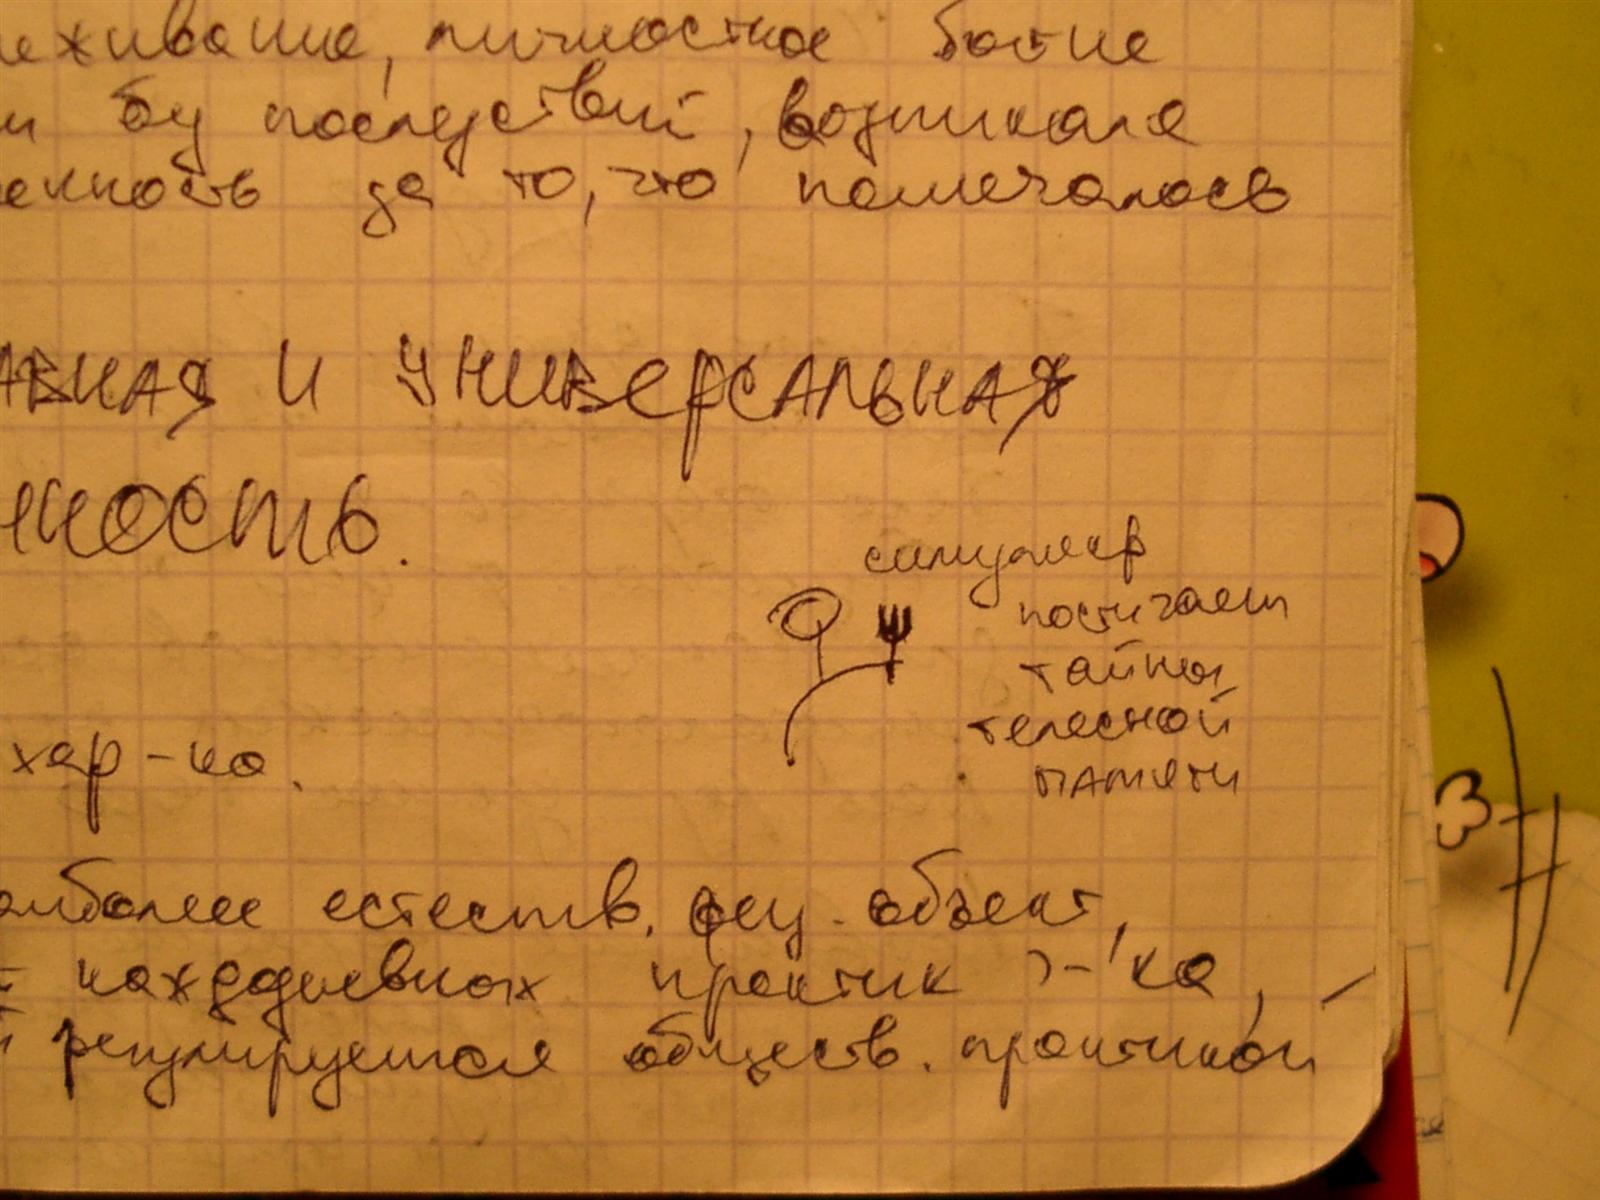 еживание, личностное
бу последствий, возникала
за то, что намечалось
АВНАЯ И УНИВЕРСАЛЬНАЯ
НОСТЬ.
симулякр
постигает
тайны
телесной
памяти
хар-ка.
аиболее естеств. физ. объект,
каждодневных практик ч-ка,
регулируется обществ. практикой